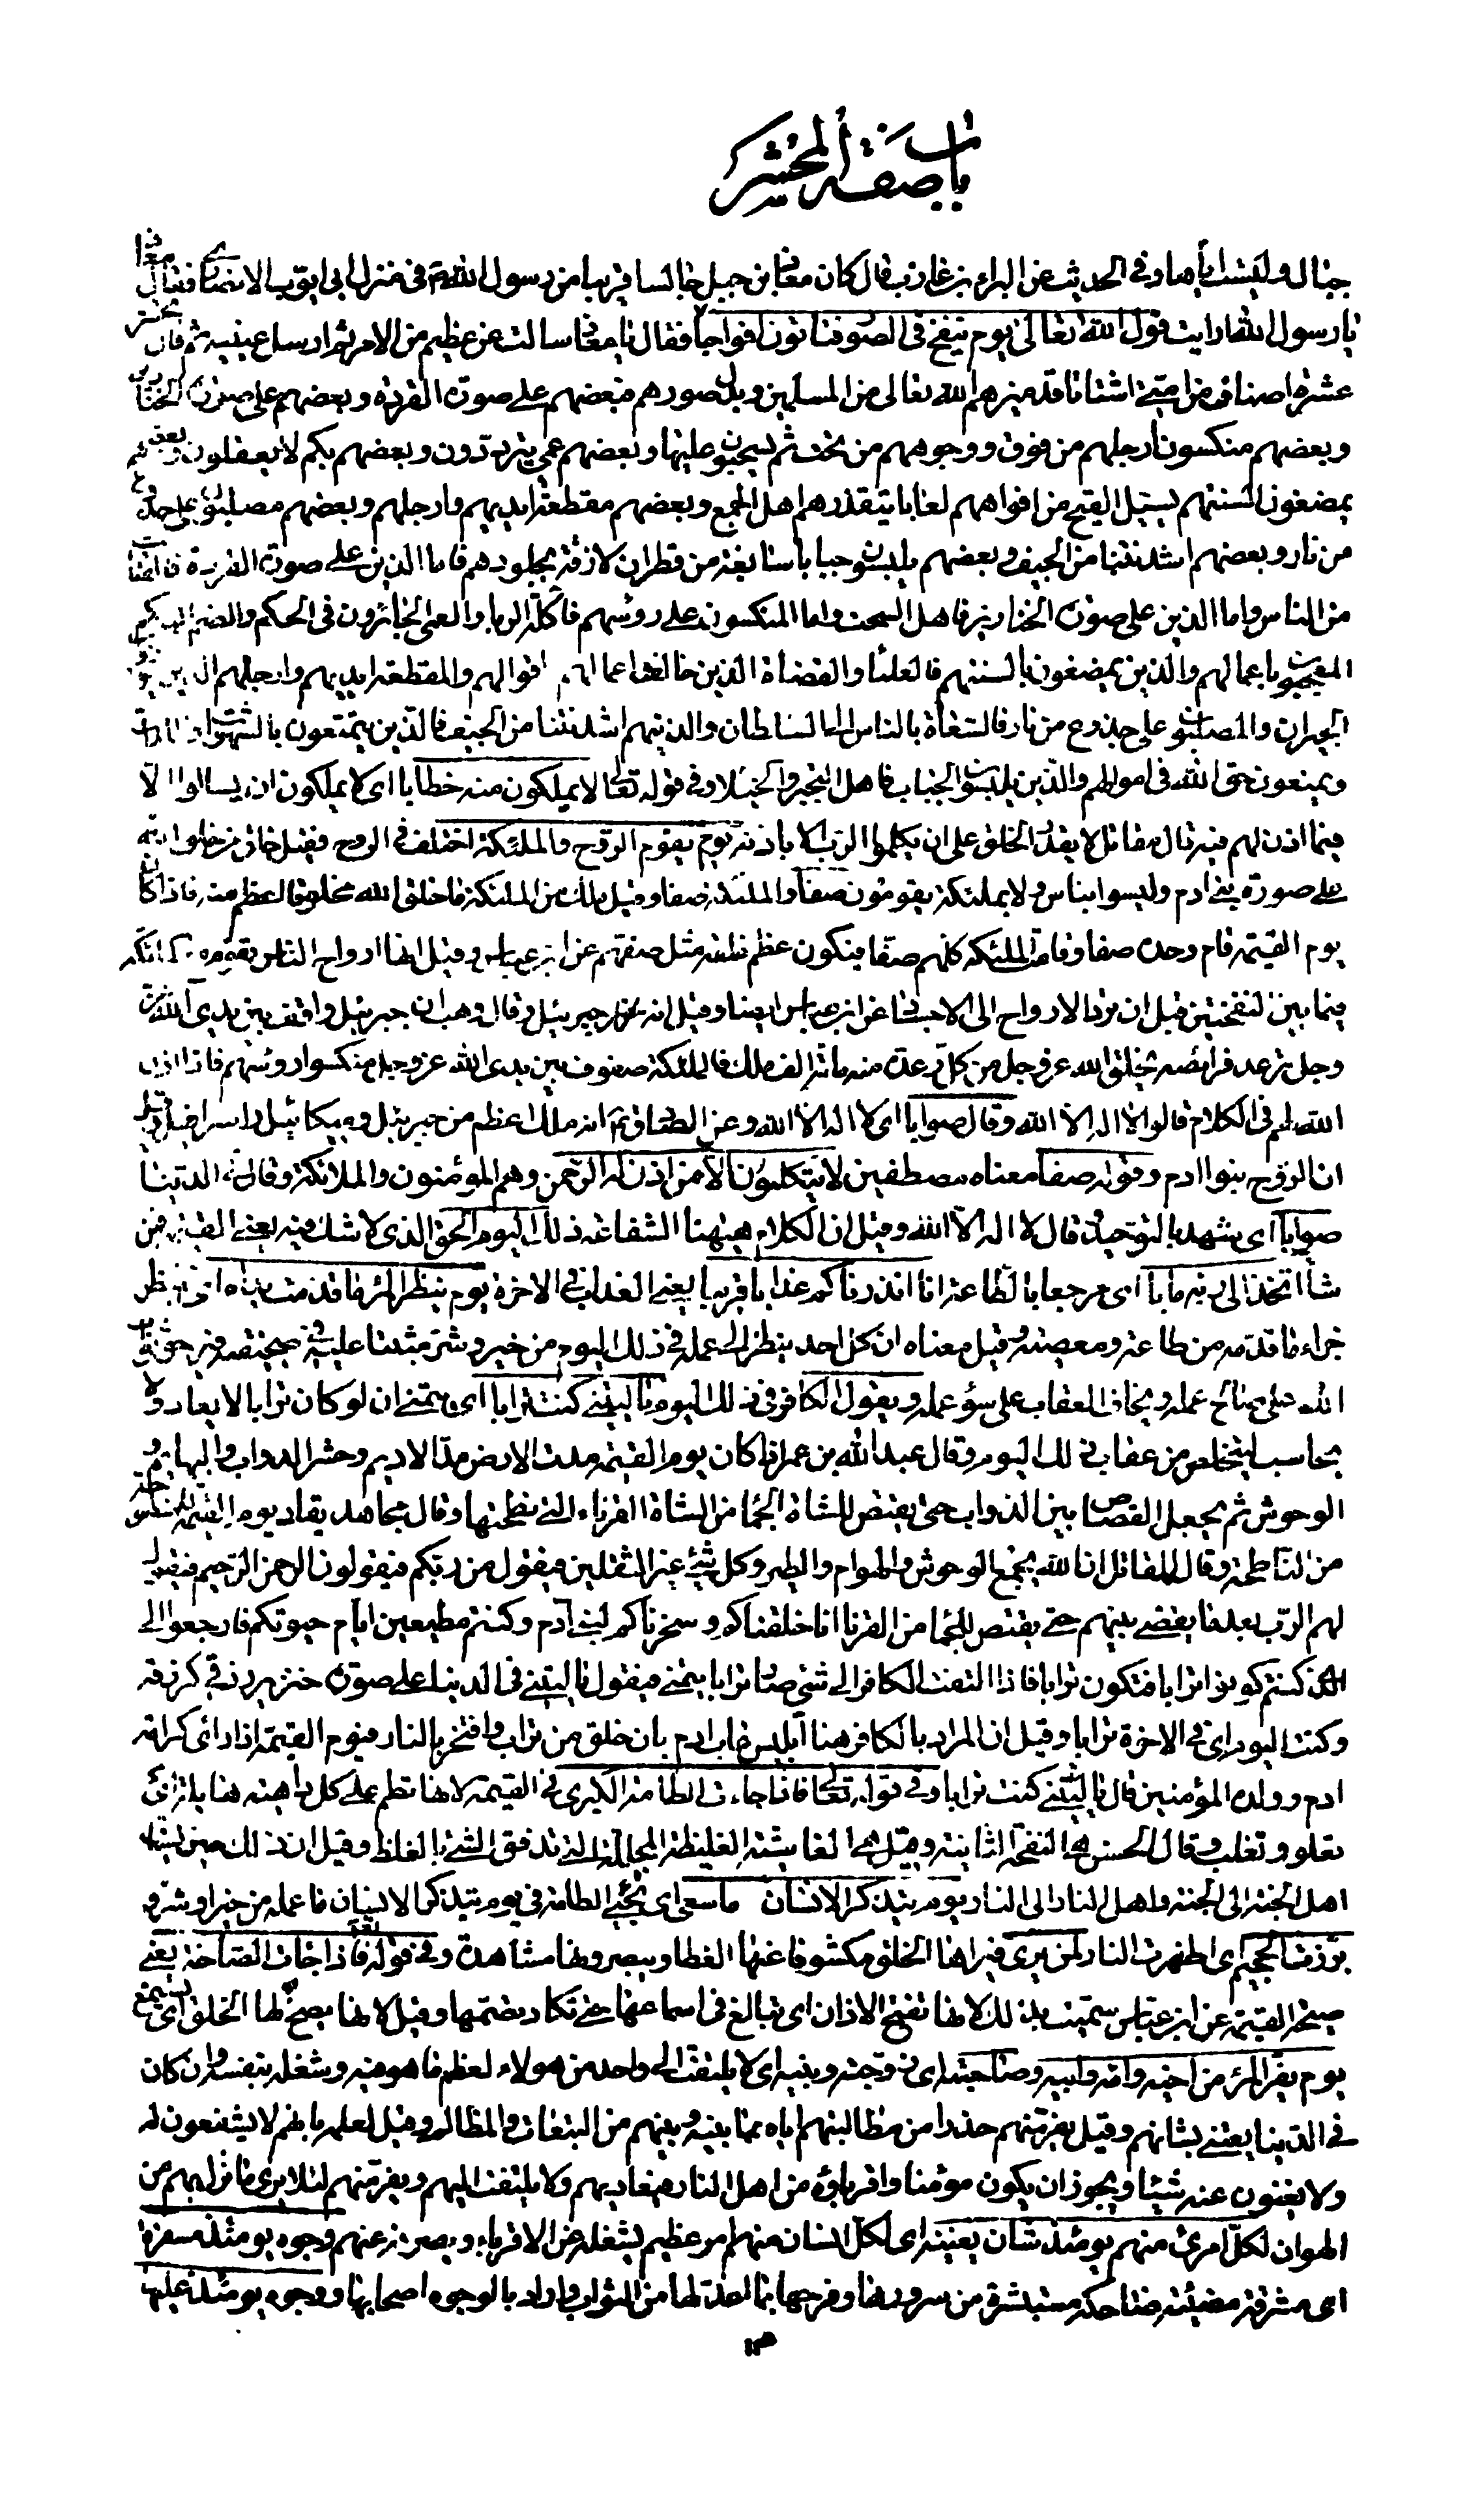 باب صفة المحشر
جبال وليست اياها وفي الحديث عن البراء بن عازب قال كان معاذ بن جبل جالسا قريبا من رسول الله ص في منزل ابي ايوب الانصاري فقال معاذ
يا رسول الله ارايت قول الله تعالى يوم ينفخ في الصور فتاتون افواجا فقال يا معاذ سالت عن عظيم من الامر ثم ارسل عينيه ثم قال يحشر
عشرة اصناف من امتي اشتاتا قد ميزهم الله تعالى من المسلمين وبدل صورهم فبعضهم على صورة القردة وبعضهم على صورة الخنازير
وبعضهم منكسون ارجلهم من فوق ووجوههم من تحت ثم يسحبون عليها وبعضهم عمي يترددون وبعضهم بكم لا يعقلون وبعضهم
يمضغون السنتهم يسيل القيح من افواههم لعابا يتقذرهم اهل الجمع وبعضهم مقطعة ايديهم وارجلهم وبعضهم مصلبون على جذوع
من نار وبعضهم اشد نتنا من الجيف وبعضهم يلبسون جبابا سابغة من قطران لازقة بجلودهم فاما الذين على صورة القردة فالقتات
من الناس واما الذين على صورة الخنازير فاهل السحت واما المنكسون على رؤسهم فاكلة الربا والعمى الجائرون في الحكم والصم البكم
المعجبون باعمالهم والذين يمضغون بالسنتهم فالعلماء والقضاة الذين خالف اعمالهم اقوالهم والمقطعة ايديهم وارجلهم الذين يؤذون
الجيران والمصلبون على جذوع من نار فالسعاة بالناس الى السلطان والذينهم اشد نتنا من الجيف فالذين يتمتعون بالشهوات واللذات
ويمنعون حق الله في اموالهم والذين يلبسون الجباب فاهل التجبر والخيلاء وفي قوله تعالى لا يملكون منه خطابا اي لا يملكون ان يسالوا الا
فيما اذن لهم فيه قال مقاتل لا يقدر الخلق على ان يكلموا الرب الا باذنه يوم يقوم الروح والملئكة اختلف في الروح فقيل خلق من خلق الله
على صورة بني ادم وليسوا بناس ولا بملئكة يقومون صفا والملئكة صفا وقيل ملك من الملئكة ما خلق الله مخلوقا اعظم منه فاذا كان
يوم القيمة قام وحده صفا وقامت الملئكة كلهم صفا فيكون عظم خلقه مثل صفهم عن ابن عباس وقيل انها ارواح الناس تقوم مع الملئكة
فيما بين النفختين قبل ان ترد الارواح الى الاجساد عن ابن عباس ايضا وقيل انه جبرئيل وقال وهب ان جبرئيل واقف بين يدي الله عز
وجل ترعد فرائصه يخلق الله عز وجل من كل رعدة منه مائة الف ملك فالملئكة صفوف بين يدي الله عز وجل منكسوا رؤسهم فاذا اذن
الله لهم في الكلام قالوا لا اله الا الله وقال صوابا اي لا اله الا الله وعن الصادق ع انه ملك اعظم من جبرئيل وميكائيل واسرافيل وقيل
ان الروح بنوا ادم وقوله صفا معناه مصطفين لا يتكلمون الا من اذن له الرحمن وهم المؤمنون والملائكة وقال في الدنيا
صوابا اي شهد بالتوحيد وقال لا اله الا الله وقيل ان الكلام هيهنا الشفاعة ذلك اليوم الحق الذي لا شك فيه يعني القيمة فمن
شاء اتخذ الى ربه مابا اي مرجعا بالطاعة انا انذرناكم عذابا قريبا يعني العذاب في الاخرة يوم ينظر المرء ما قدمت يداه اي ينظر
جزاء ما قدمه من طاعة ومعصية وقيل معناه ان كل احد ينظر الى عمله في ذلك اليوم من خير وشر مثبتا عليه في صحيفته فيرجو ثواب
الله على صالح عمله ويخاف العقاب على سوء عمله ويقول الكافر في ذلك اليوم يا ليتني كنت ترابا اي يتمنى ان لو كان ترابا لا يعاد ولا
يحاسب ليتخلص من عقاب ذلك اليوم وقال عبد الله بن عمر اذا كان يوم القيمة مدت الارض مد الاديم وحشر الدواب والبهايم و
الوحوش ثم يجعل القصاص بين الدواب حتى يقتص للشاة الجماء من الشاة القرناء التي نطحتها وقال مجاهد يقاد يوم القيمة للمنطوحة
من الناطحة وقال المقاتل ان الله يجمع الوحوش والهوام والطير وكل شيء غير الثقلين فيقول من ربكم فيقولون الرحمن الرحيم فيقول
لهم الرب بعد ما يقضي بينهم حتى يقتص للجماء من القرناء انا خلقناكم وسخرناكم لبني آدم وكنتم مطيعين ايام حيوتكم فارجعوا الى
الذي كنتم كونوا ترابا فتكون ترابا فاذا التفت الكافر الى شيء صار ترابا يتمنى فيقول يا ليتني في الدنيا على صورة خنزير رزقي كرزقه
وكنت اليوم اي في الاخرة ترابا وقيل ان المراد بالكافر هنا ابليس عاب ادم بان خلق من تراب وافتخر بالنار فيوم القيمة اذا رأى كرامة
ادم وولده المؤمنين قال يا ليتني كنت ترابا وفي قوله تعالى فاذا جاءت الطامة الكبرى هي القيمة لانها تطم على كل داهية هنا
تعلو وتغلب وقال الحسن هي النفخة الثانية وقيل هي الغاشية الغليظة المجللة التي تدفق الشيء بالغلظ وقيل ان ذلك حين يساق
اهل الجنة الى الجنة واهل النار الى النار يوم يتذكر الانسان ما سعى اي تجيء الطامة في يوم يتذكر الانسان ما عمله من خير او شر و
برزت الجحيم اي اظهرت النار لمن يرى فيراها الخلق مكشوفا عنها الغطاء ويبصرونها مشاهدة وفي قوله تعالى فاذا جاءت الصاخة يعني
صيخة القيمة عن ابن عباس سميت بذلك لانها تصخ الاذان اي تبالغ في اسماعها حتى تكاد تصمها وقيل لانها يصخ لها الخلق اي يستمع
يوم يفر المرء من اخيه وامه وابيه وصاحبته اي زوجته وبنيه اي لا يلتفت الى واحد من هولاء لعظم ما هو فيه وشغله بنفسه وان كان
في الدنيا يعتني بشانهم وقيل يفر منهم حذرا من مطالبتهم اياه بما بينه وبينهم من التبعات والمظالم وقيل لعلمه بانهم لا يشفعون له
ولا يغنون عنه شيئا ويجوز ان يكون مؤمنا واقرباؤه من اهل النار فيعاديهم ولا يلتفت اليهم ويفر منهم لئلا يرى ما نزل بهم من
الهوان لكل امرئ منهم يومئذ شان يغنيه اي لكل انسان منهم امر عظيم يشغله عن الاقرباء ويصرفه عنهم وجوه يومئذ مسفرة
اي مشرقة مضيئة ضاحكة مستبشرة من سرورها وفرحها بما اعد لها من الثواب واراد بالوجوه اصحابها ووجوه يومئذ عليها